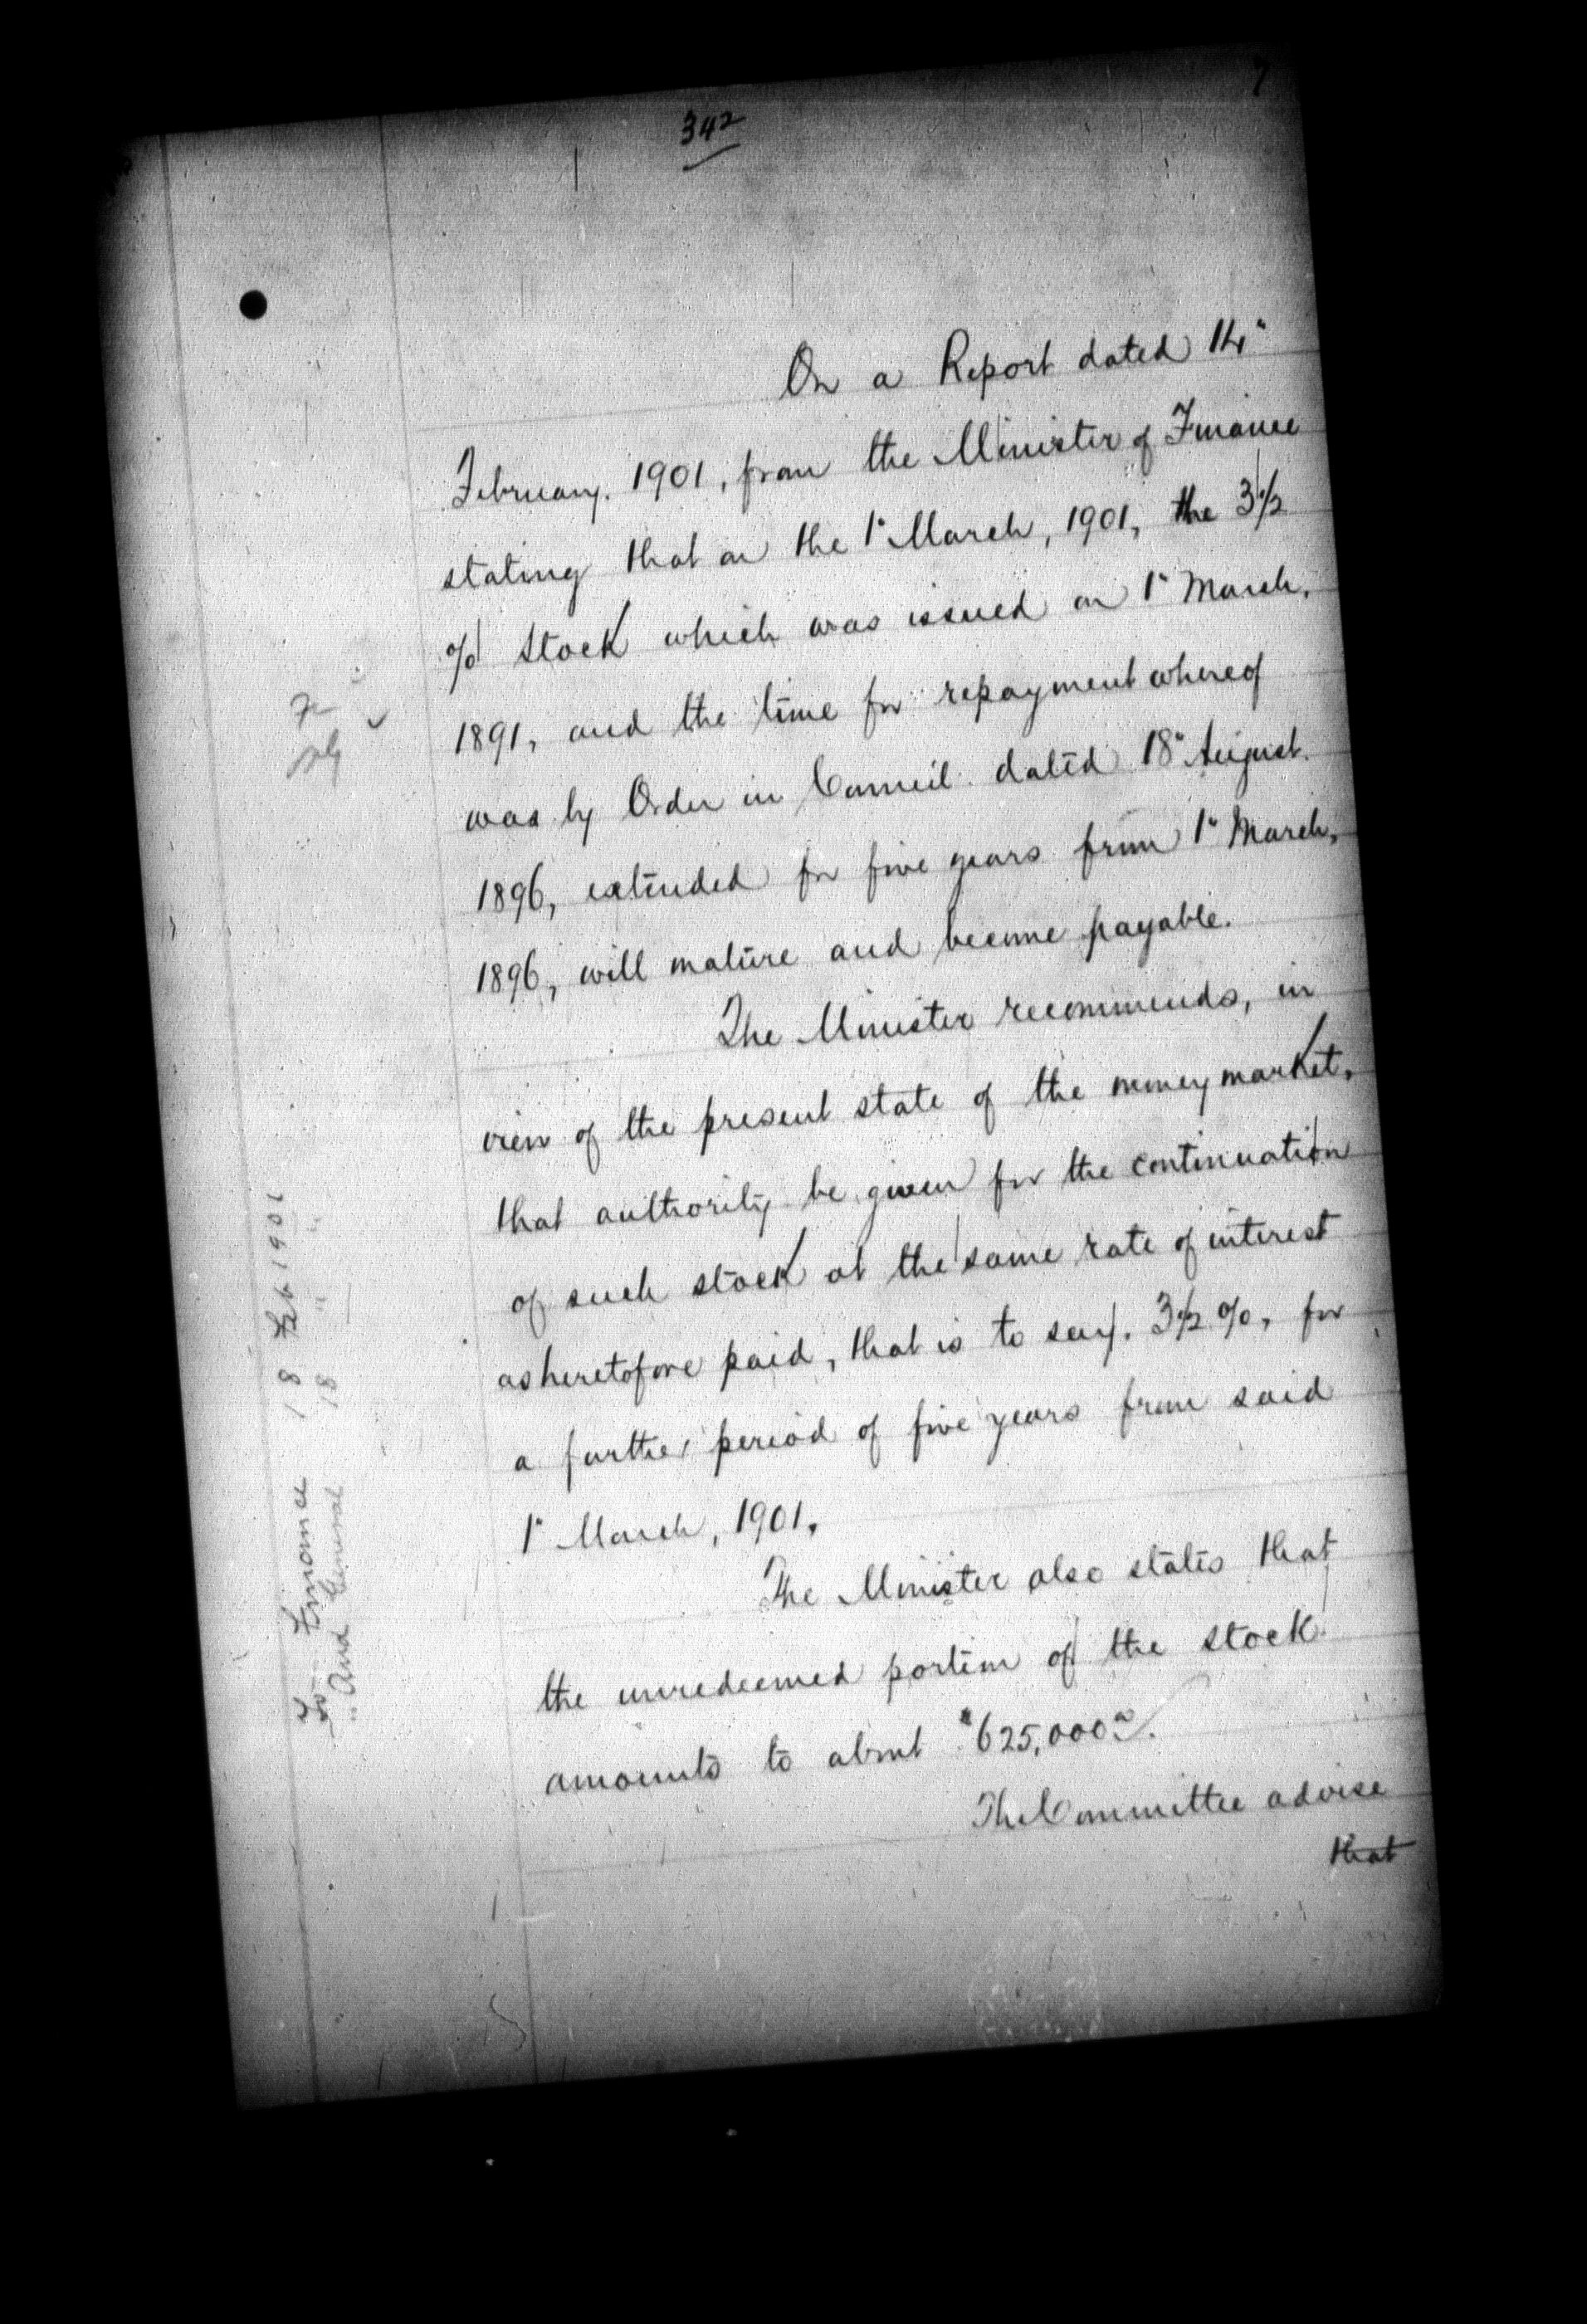 342
7
On a Report dated 14"
February. 1901, from the Minister of Finance
stating that on the 1" March, 1901, the 3½
% Stock which was issued on 1" March,
1891, and the time for repayment whereof
was by Order in Council dated 18" August.
1896, extended for five years from 1" March,
1896, will mature and become payable.
The Minister recommends, in
view of the present state of the money market,
that authority be given for the continuation
of such stock at the same rate of interest
as heretofore paid, that is to say. 3½ %, for
a further period of five years from said
1" March, 1901.
The Minister also states that
the unredeemed portion of the stock
amounts to about $625,000.00.
The Committee advise
that
To Finance 18 Feb 1901
" Aud General 18 " "